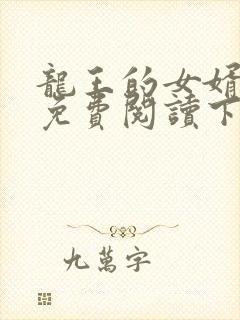 龍王的女婿
免費閱讀下
九萬字